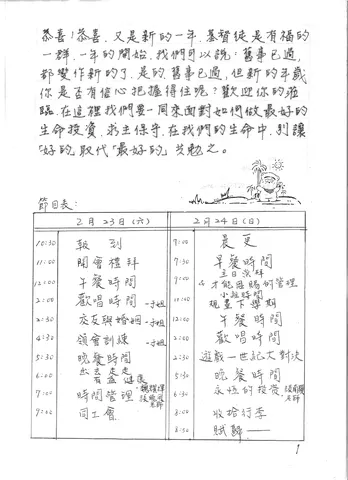 恭喜!恭喜,又是新的一年,基督徒是有福的
一群,一年的開始,我們可以說:舊事已過,
都變作新的了,是的,舊事已過,但新的年歲
你是否有信心把握得住呢?歡迎你的蒞
臨,在這裡我們要一同來面對如何做最好的
生命投資,求主保守,在我們的生命中,別讓
「好的」取代「最好的」共勉之。
節目表:
2月23日(六)
10:30 報到
11:00 開會禮拜
12:00 午餐時間
2:00 歡唱時間
2:30 交友與婚姻
4:30 領會訓練
5:30 晚餐時間
6:00 出去走走
有益健康
7:00 時間管理
9:00 同工會
2月24日(日)
7:00 晨更
7:30 早餐時間
9:00 主日崇拜
才能恩賜的管理
小組時間
10:00
12:00 午餐時間
歡唱時間
2:30 遊戲一世紀大對決
5:30 晚餐時間
6:30 永恆的投資
8:00 收拾行李
8:30 賦歸——
1